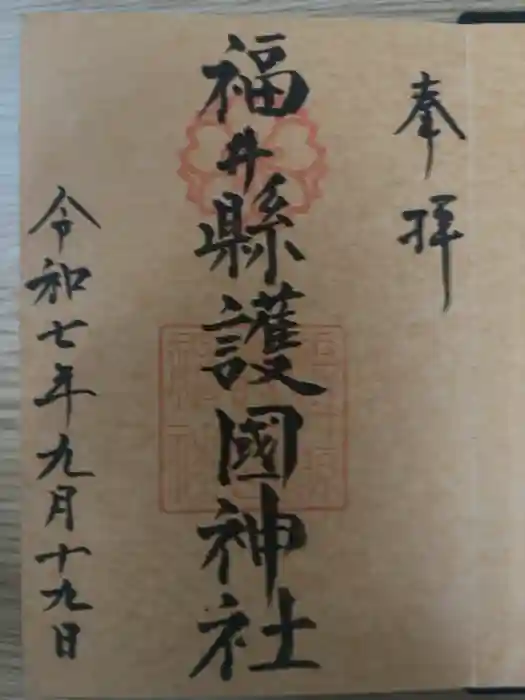 奉拝
福井縣護國神社
令和七年九月十九日